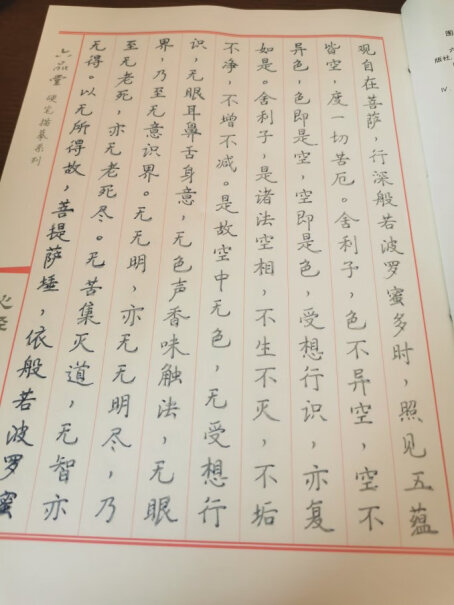 观自在菩萨，行深般若波罗蜜多时，照见五蕴
皆空，度一切苦厄。舍利子，色不异空，空不
异色，色即是空，空即是色，受想行识，亦复
如是。舍利子，是诸法空相，不生不灭，不垢
不净，不增不减。是故空中无色，无受想行
识，无眼耳鼻舌身意，无色声香味触法，无眼
界，乃至无意识界。无无明，亦无无明尽，乃
至无老死，亦无老死尽。无苦集灭道，无智亦
无得。以无所得故，菩提萨埵，依般若波罗蜜
六品堂 硬笔描摹系列
心经
图
版社
IV